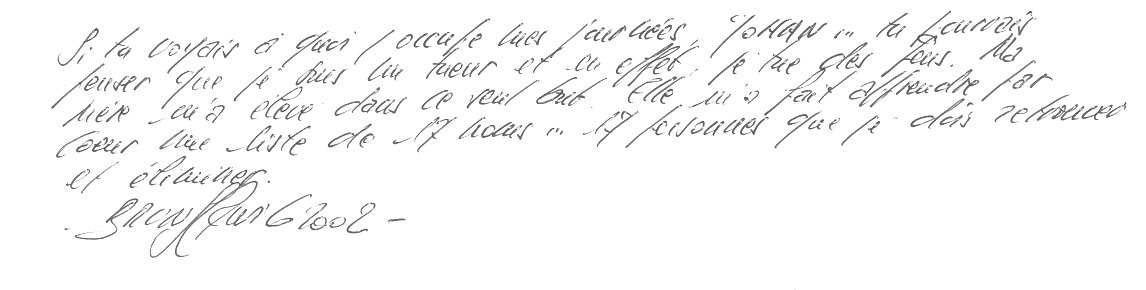 Si tu voyais à quoi j'occupe mes journées, YOHAN... tu pourrais
penser que je suis un tueur et en effet, je tue des gens. Ma
mère m'a élevé dans ce seul but. Elle m'a fait apprendre par
coeur une liste de 17 noms... 17 personnes que je dois retrouver
et éliminer.
2002 -